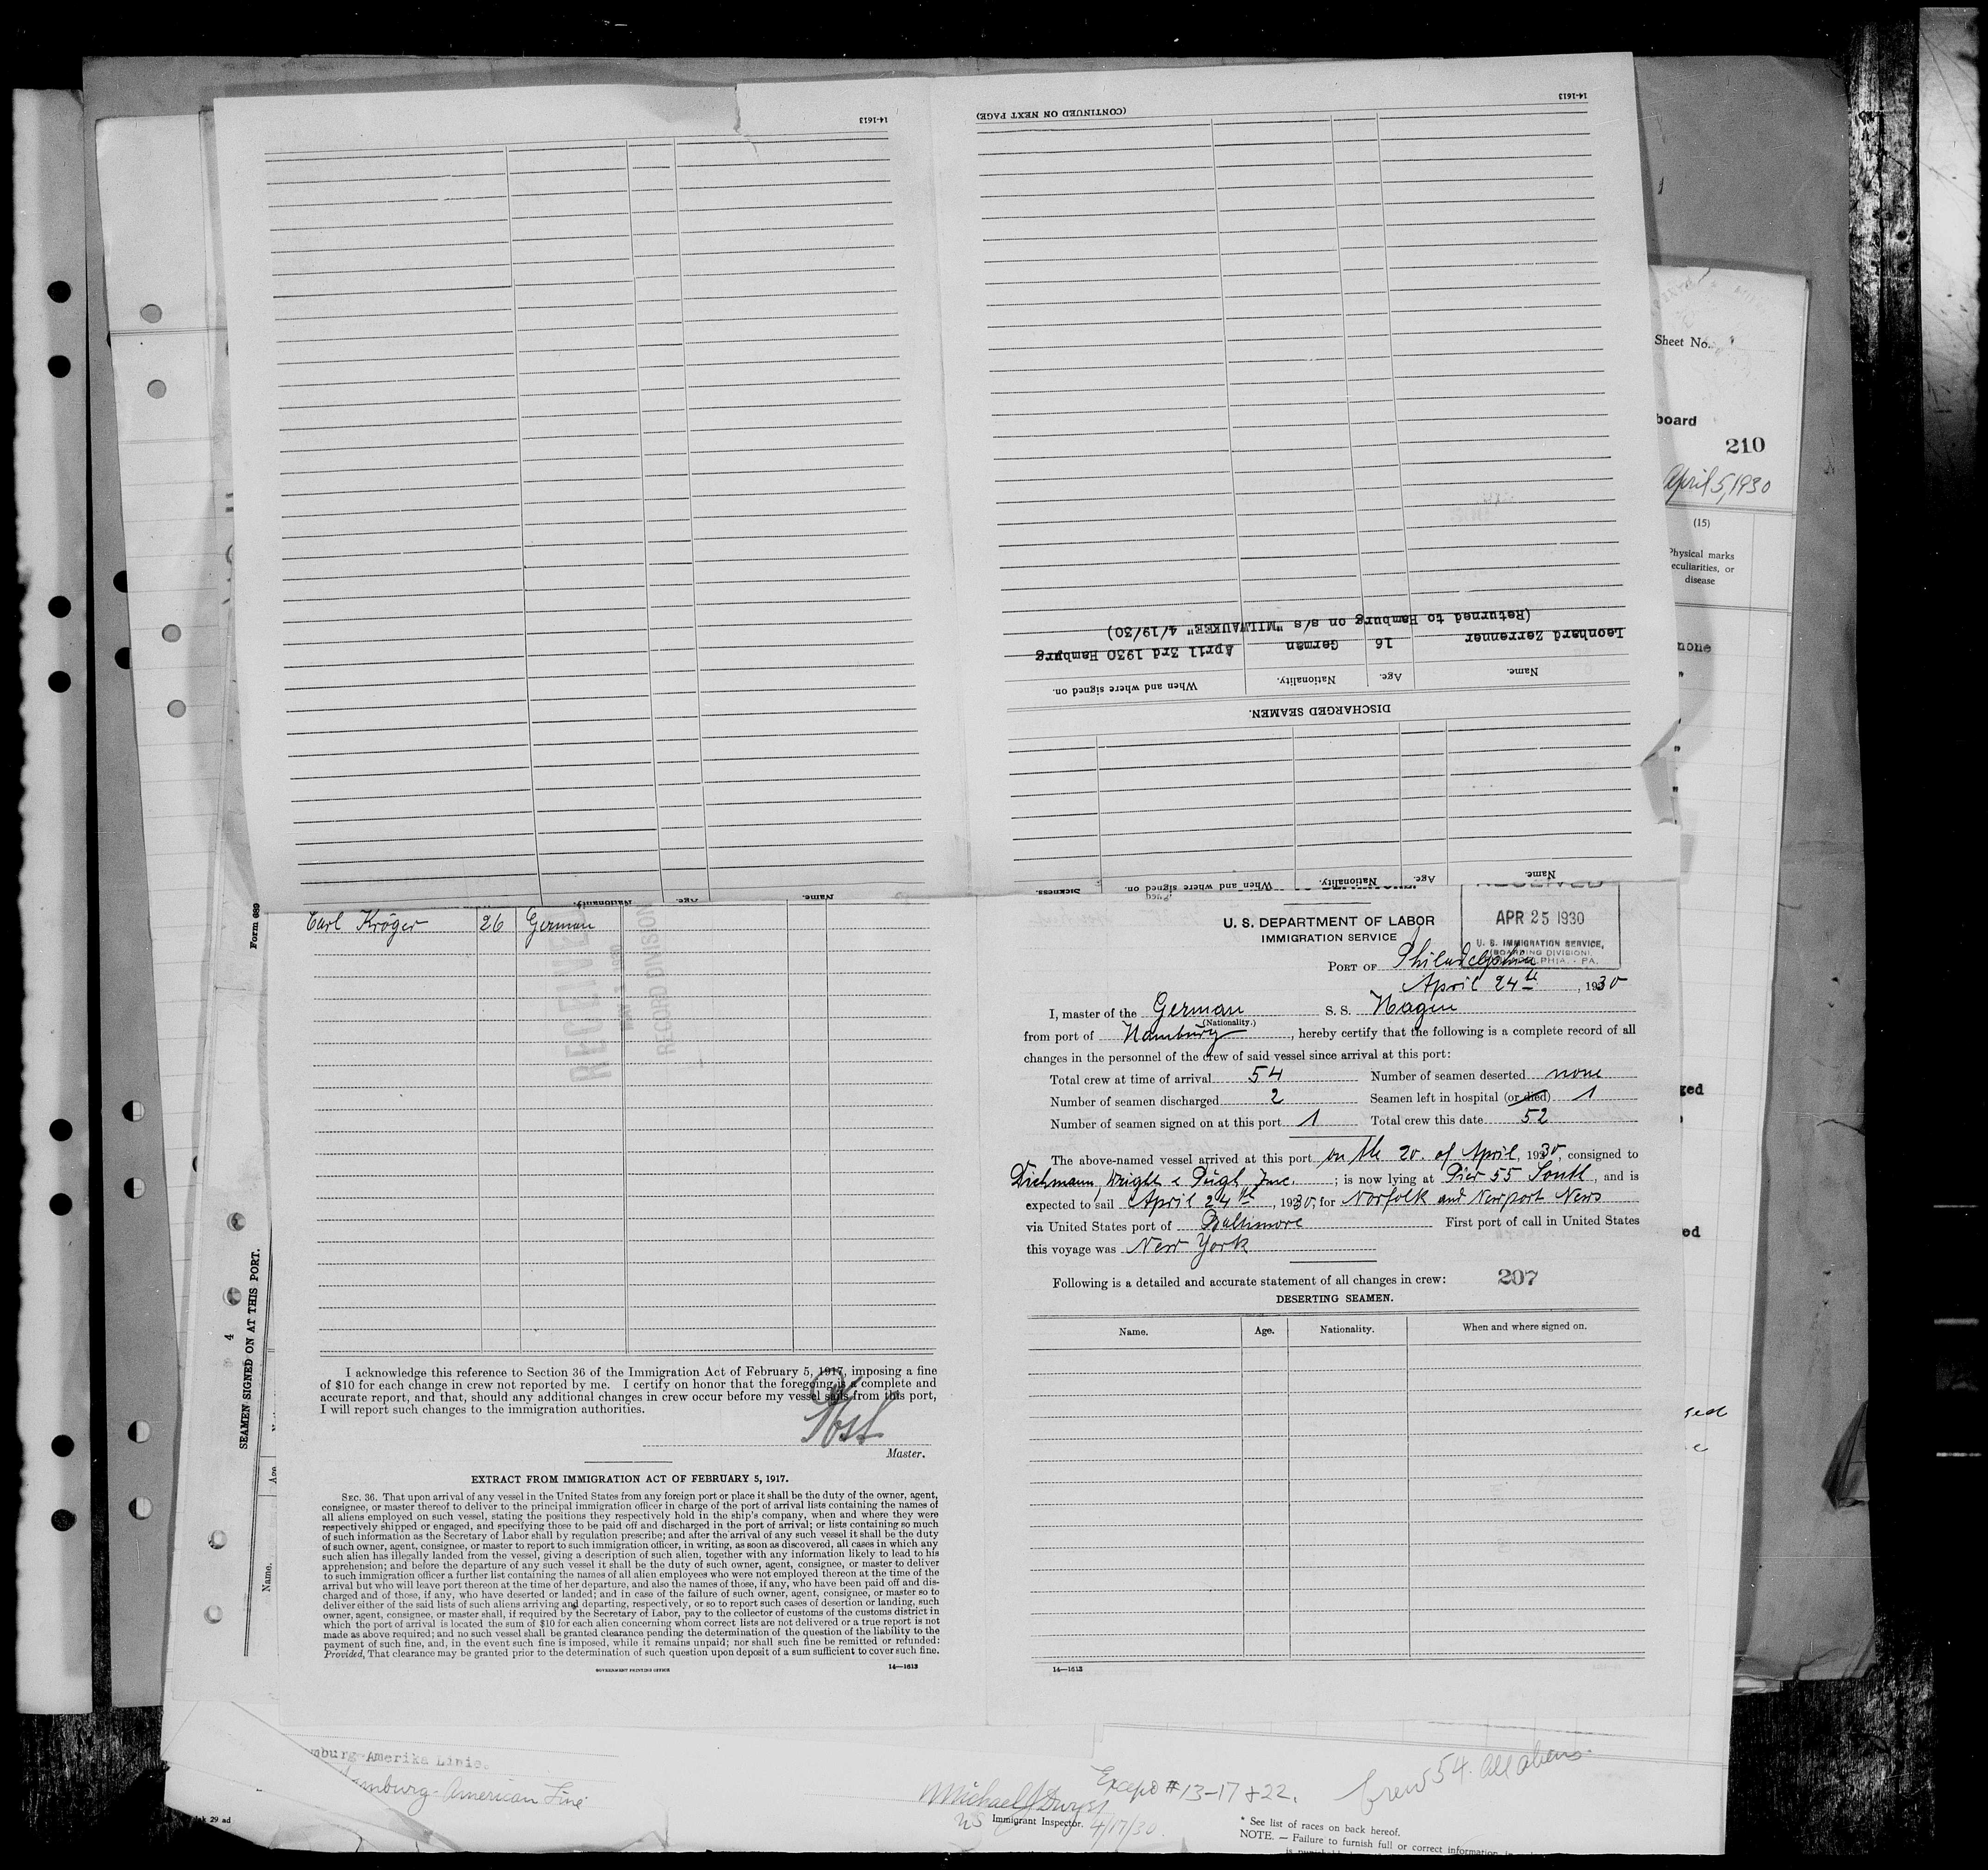 14-1613
14-1613
(CONTINUED ON NEXT PAGE)
(Returned to Hamburg on s/s "MILWAUKEE" 4/19/30)
Leonhard Zerrenner 16 German April 3rd 1930 Hamburg
Name. Age. Nationality. When and where signed on.
DISCHARGED SEAMEN.
Name. Age. Nationality. When and where signed on. Sickness.
Name. Age. Nationality.
Sheet No.
board
210
April 5, 1930
(15)
Physical marks
peculiarities, or
disease
none
Form 689
4
SEAMEN SIGNED ON AT THIS PORT.
Name. Age
Carl Kröger 26 German
RECEIVED
RECORD DIVISION
I acknowledge this reference to Section 36 of the Immigration Act of February 5, 1917, imposing a fine
of $10 for each change in crew not reported by me. I certify on honor that the foregoing is a complete and
accurate report, and that, should any additional changes in crew occur before my vessel sails from this port,
I will report such changes to the immigration authorities.
Master.
EXTRACT FROM IMMIGRATION ACT OF FEBRUARY 5, 1917.
SEC. 36. That upon arrival of any vessel in the United States from any foreign port or place it shall be the duty of the owner, agent,
consignee, or master thereof to deliver to the principal immigration officer in charge of the port of arrival lists containing the names of
all aliens employed on such vessel, stating the positions they respectively hold in the ship's company, when and where they were
respectively shipped or engaged, and specifying those to be paid off and discharged in the port of arrival; or lists containing so much
of such information as the Secretary of Labor shall by regulation prescribe; and after the arrival of any such vessel it shall be the duty
of such owner, agent, consignee, or master to report to such immigration officer, in writing, as soon as discovered, all cases in which any
such alien has illegally landed from the vessel, giving a description of such alien, together with any information likely to lead to his
apprehension; and before the departure of any such vessel it shall be the duty of such owner, agent, consignee, or master to deliver
to such immigration officer a further list containing the names of all alien employees who were not employed thereon at the time of the
arrival but who will leave port thereon at the time of her departure, and also the names of those, if any, who have been paid off and dis-
charged and of those, if any, who have deserted or landed; and in case of the failure of such owner, agent, consignee, or master so to
deliver either of the said lists of such aliens arriving and departing, respectively, or so to report such cases of desertion or landing, such
owner, agent, consignee, or master shall, if required by the Secretary of Labor, pay to the collector of customs of the customs district in
which the port of arrival is located the sum of $10 for each alien concerning whom correct lists are not delivered or a true report is not
made as above required; and no such vessel shall be granted clearance pending the determination of the question of the liability to the
payment of such fine, and, in the event such fine is imposed, while it remains unpaid; nor shall such fine be remitted or refunded:
Provided, That clearance may be granted prior to the determination of such question upon deposit of a sum sufficient to cover such fine.
GOVERNMENT PRINTING OFFICE
14—1613
U. S. DEPARTMENT OF LABOR
IMMIGRATION SERVICE
RECEIVED
APR 25 1930
U. S. IMMIGRATION SERVICE,
(BOARDING DIVISION),
PHILADELPHIA. - PA.
PORT OF Philadelphia
April 24th, 1930
I, master of the German S. S. Hagen
(Nationality.)
from port of Hamburg, hereby certify that the following is a complete record of all
changes in the personnel of the crew of said vessel since arrival at this port:
Total crew at time of arrival 54 Number of seamen deserted none
Number of seamen discharged 2 Seamen left in hospital (or died) 1
Number of seamen signed on at this port 1 Total crew this date 52
The above-named vessel arrived at this port on the 20. of April, 1930, consigned to
Dichmann, Wright & Pugh Inc.; is now lying at Pier 55 South, and is
expected to sail April 24th, 1930, for Norfolk and Newport News
via United States port of Baltimore First port of call in United States
this voyage was New York
Following is a detailed and accurate statement of all changes in crew: 207
DESERTING SEAMEN.
Name. Age. Nationality. When and where signed on.
14—1613
mburg-Amerika Linie.
amburg-American Line
29 ad
Michael J Dwyer
US Immigrant Inspector. 4/17/30
Except #13-17+22.
Crew 54. All aliens.
* See list of races on back hereof.
NOTE. — Failure to furnish full or correct information